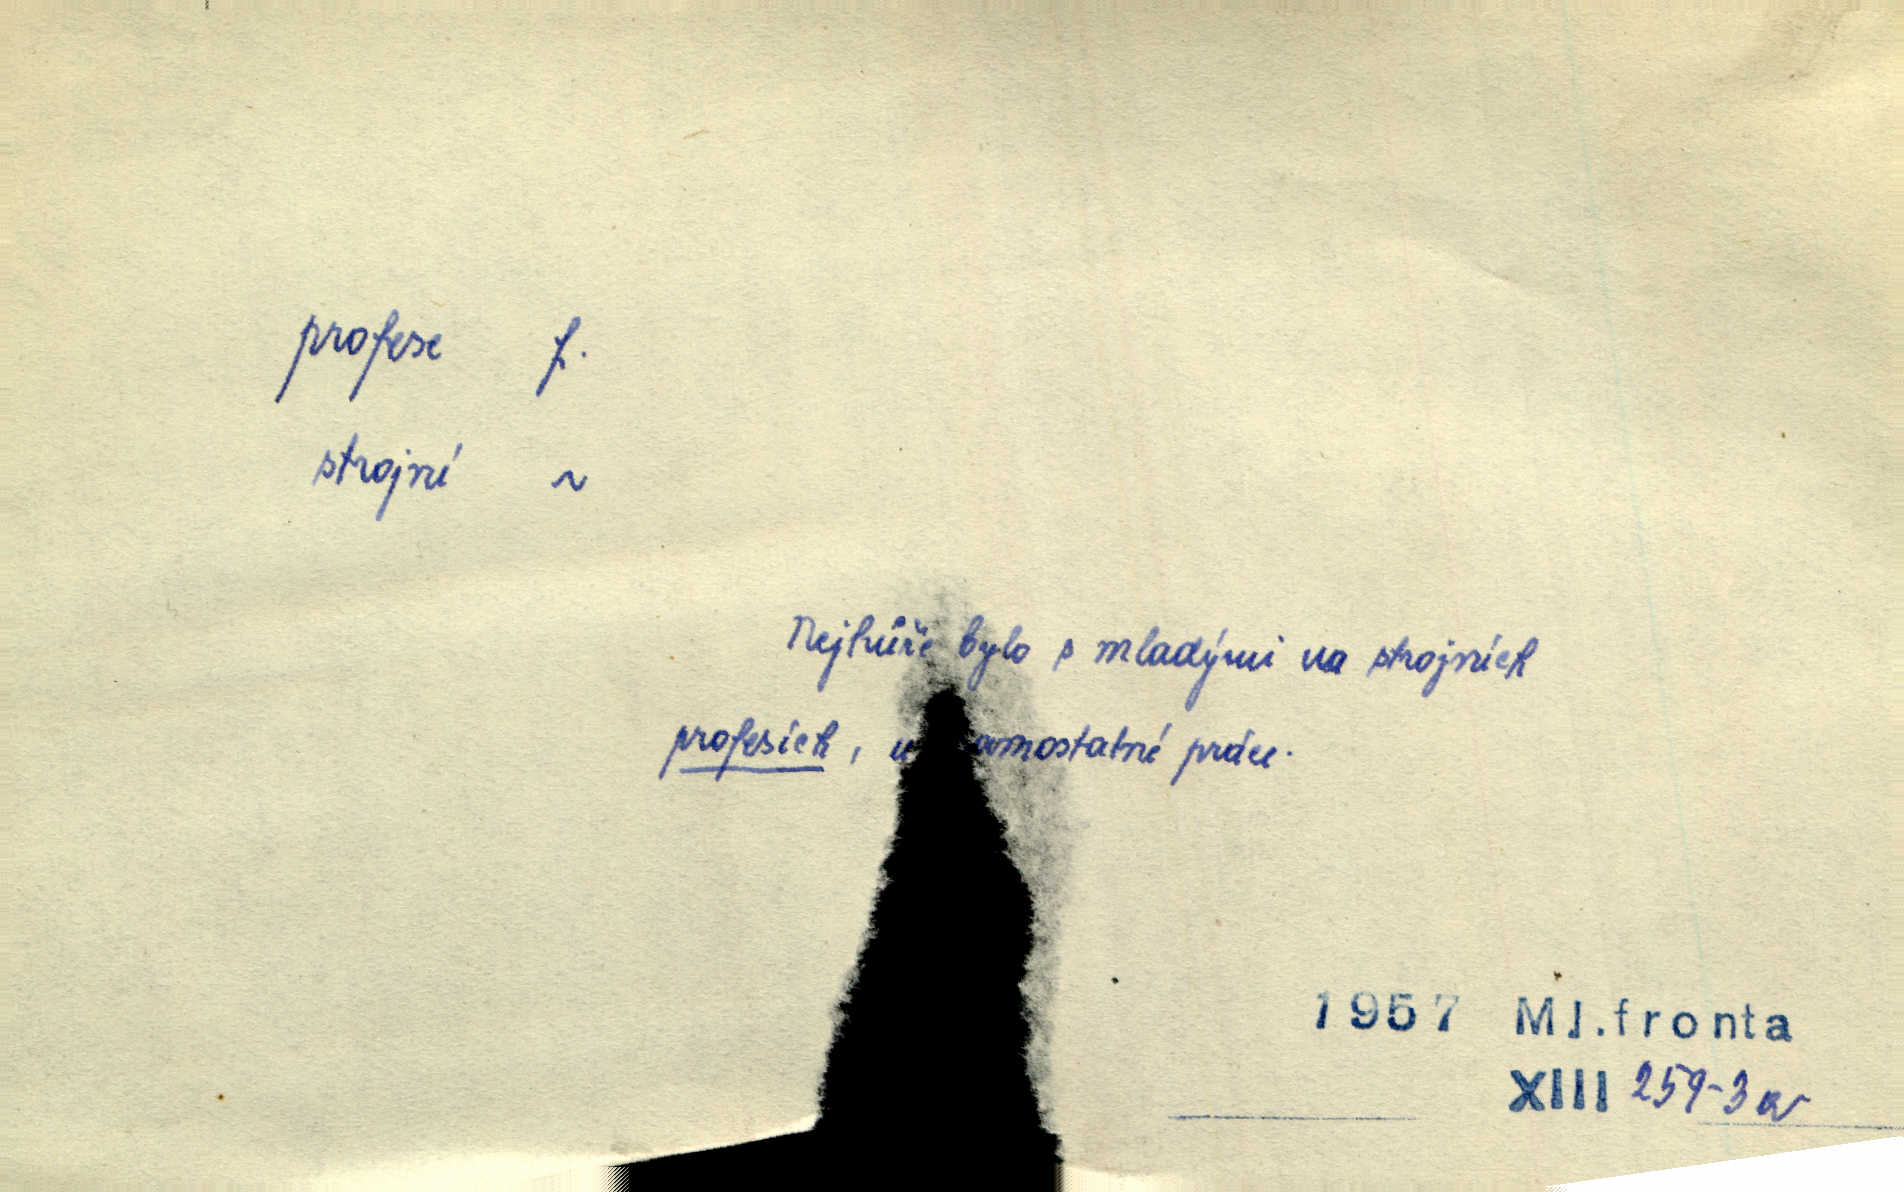 profese f.
strojní ~
Nejhůře bylo s mladými na strojních
profesích, amostatné práce.
1957 Ml.fronta
XIII 259-3